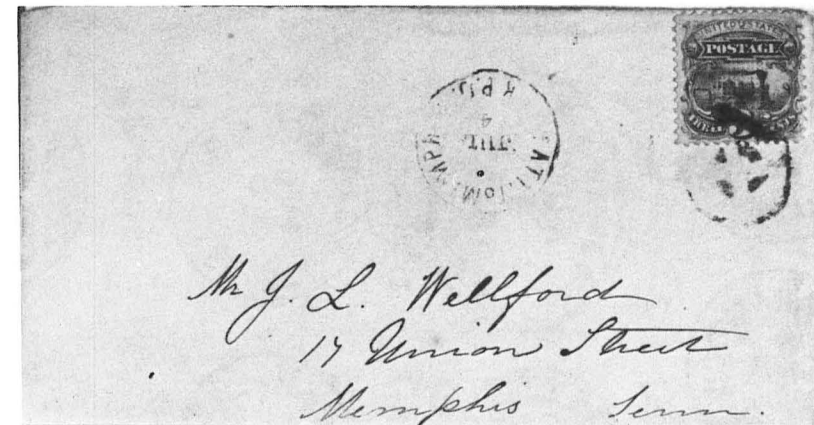 UNITED STATES
POSTAGE
THREE
JUL
4
Mr J. L. Wellford
17 Union Street
Memphis Tenn.